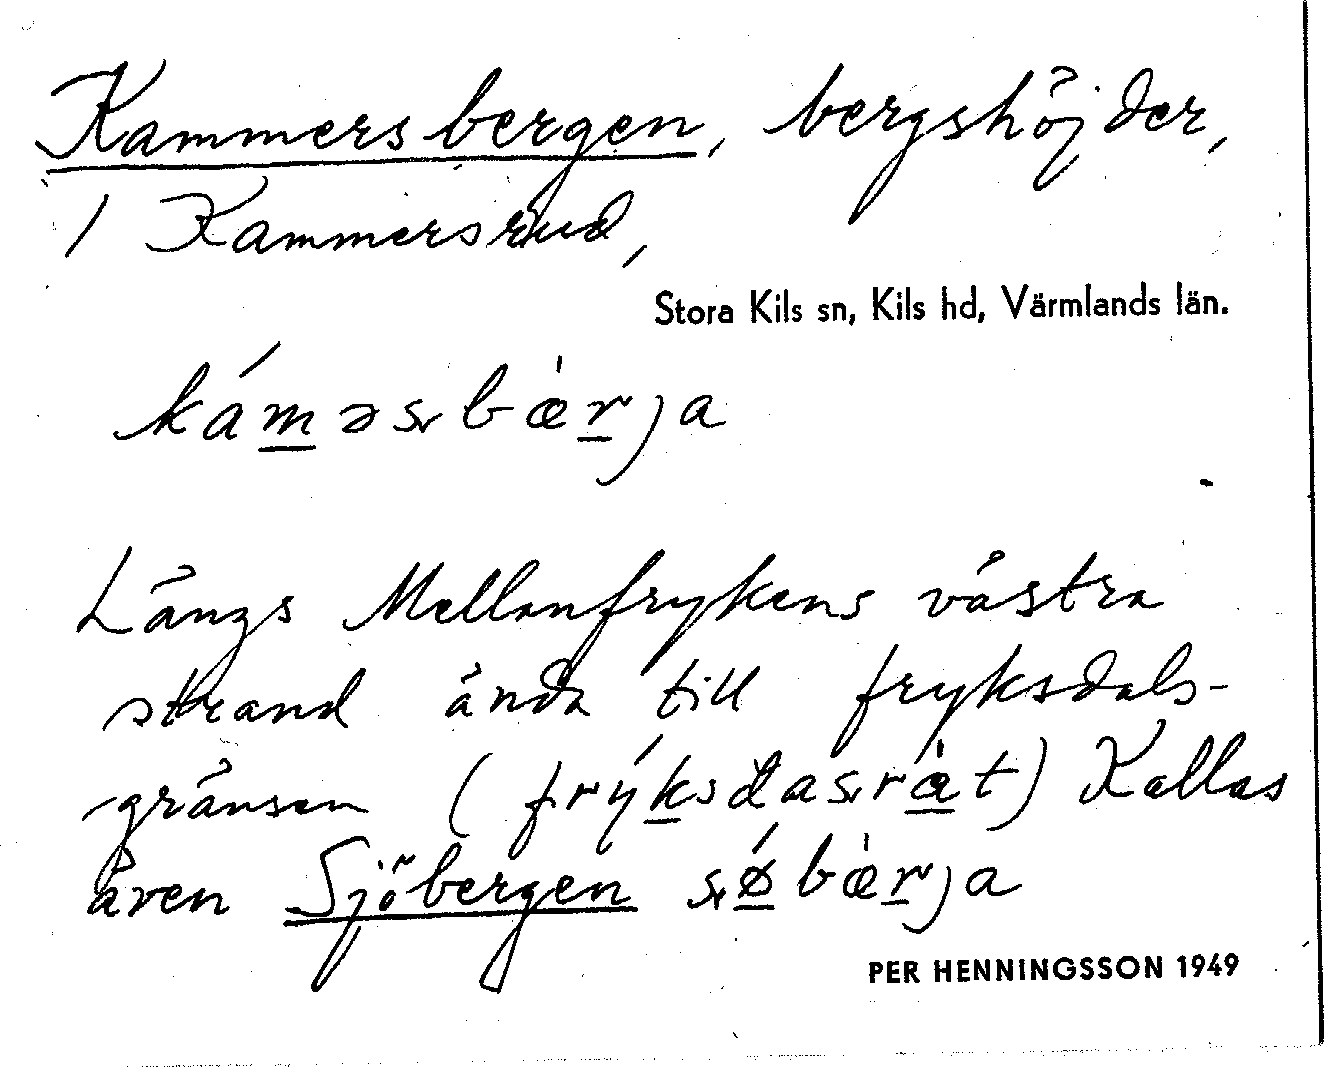 Kammersbergen, bergshöjder,
/ Kammersrud,
Stora Kils sn, Kils hd, Värmlands län.
kám̲əsbæ̀r̲ja
Längs Mellanfrykens västra
strand ända till fryksdals-
gränsen (frýk̲sdasræ̲̀t) Kallas
även Sjöbergen sǿ̲bæ̀r̲ja
PER HENNINGSSON 1949